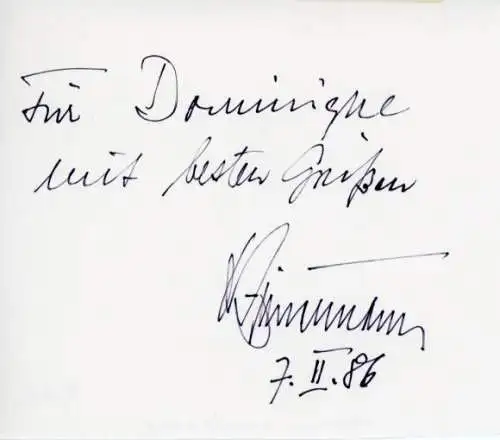 Für Dominique
mit besten Grüßen
7. II. 86